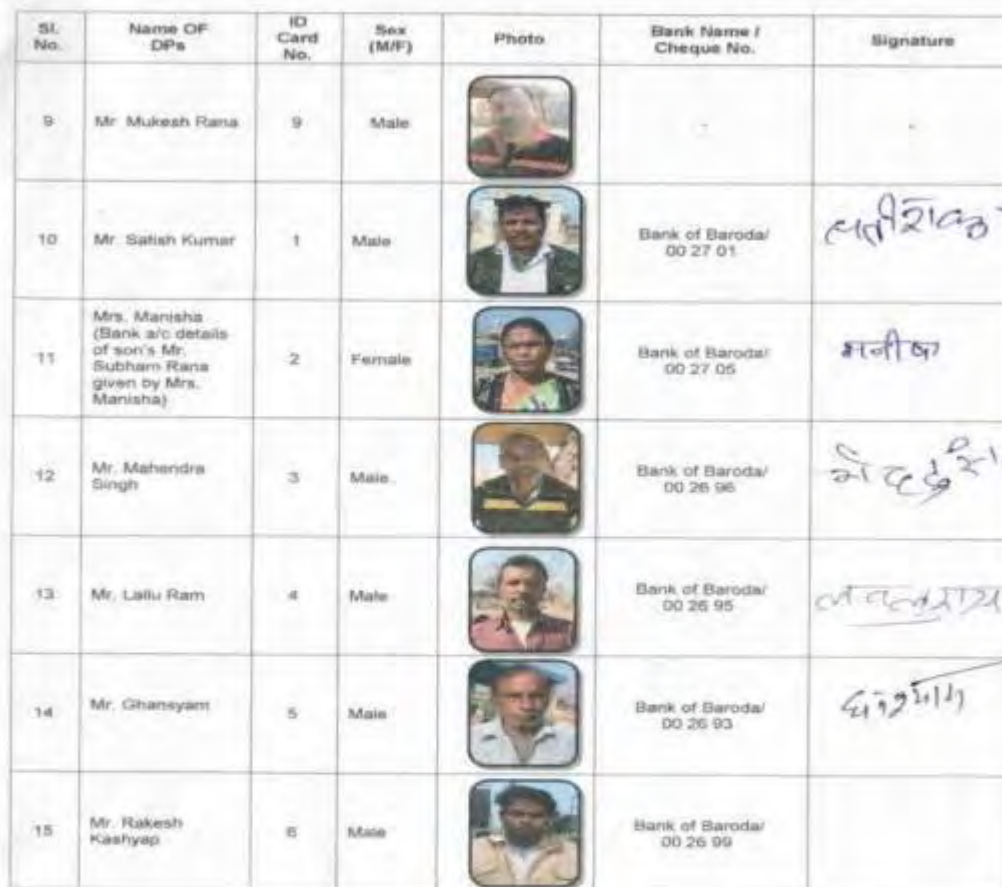 Sl. No. Name OF DPs ID Card No. Sex (M/F) Photo Bank Name / Cheque No. Signature
9 Mr Mukesh Rana 9 Male - -
10 Mr. Satish Kumar 1 Male Bank of Baroda/ 00 27 01
11 Mrs. Manisha (Bank a/c details of son's Mr. Subham Rana given by Mrs. Manisha) 2 Female Bank of Baroda/ 00 27 05 मनीषा
12 Mr. Mahendra Singh 3 Male Bank of Baroda/ 00 26 96
13 Mr. Lallu Ram 4 Male Bank of Baroda/ 00 26 95
14 Mr. Ghansyam 5 Male Bank of Baroda/ 00 26 93
15 Mr. Rakesh Kashyap 6 Male Bank of Baroda/ 00 26 99